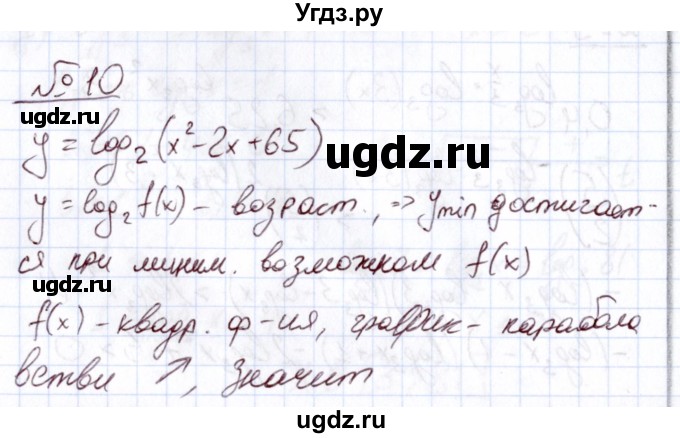 Угдз.ру
№ 10
ugdz.ru
ugdz.ru
y = log₂(x² - 2x + 65)
ugdz.ru
y = log₂ f(x) - возраст., => y min достигает-
ugdz.ru
ся при миним. возможном f(x)
f(x) - квадр. ф-ия, график - парабола
ветви ↗, значит
ugdz.ru
ugdz.ru